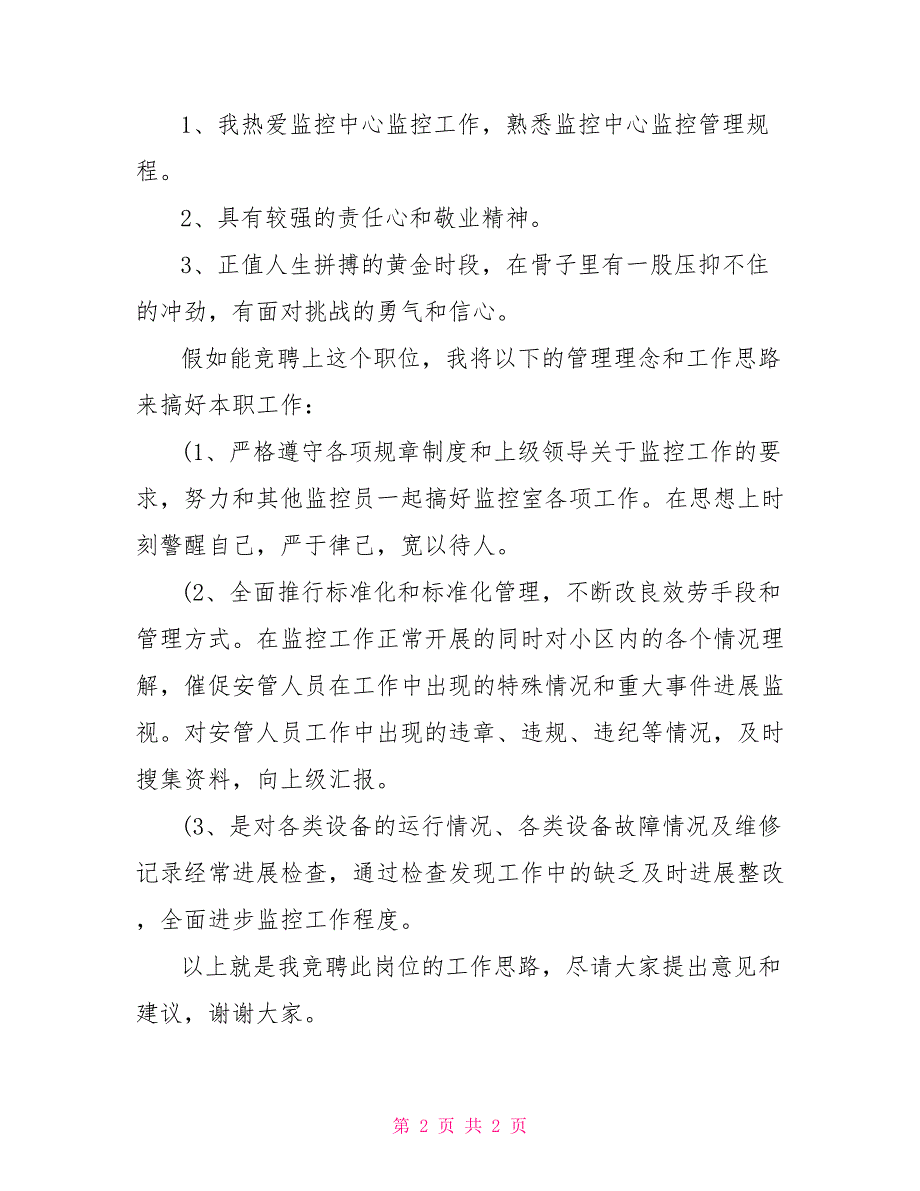 1、我热爱监控中心监控工作，熟悉监控中心监控管理规
程。
2、具有较强的责任心和敬业精神。
3、正值人生拼搏的黄金时段，在骨子里有一股压抑不住
的冲劲，有面对挑战的勇气和信心。
假如能竞聘上这个职位，我将以下的管理理念和工作思路
来搞好本职工作：
(1、严格遵守各项规章制度和上级领导关于监控工作的要
求，努力和其他监控员一起搞好监控室各项工作。在思想上时
刻警醒自己，严于律己，宽以待人。
(2、全面推行标准化和标准化管理，不断改良效劳手段和
管理方式。在监控工作正常开展的同时对小区内的各个情况理
解，催促安管人员在工作中出现的特殊情况和重大事件进展监
视。对安管人员工作中出现的违章、违规、违纪等情况，及时
搜集资料，向上级汇报。
(3、是对各类设备的运行情况、各类设备故障情况及维修
记录经常进展检查，通过检查发现工作中的缺乏及时进展整改
，全面进步监控工作程度。
以上就是我竞聘此岗位的工作思路，尽请大家提出意见和
建议，谢谢大家。
第 2 页 共 2 页